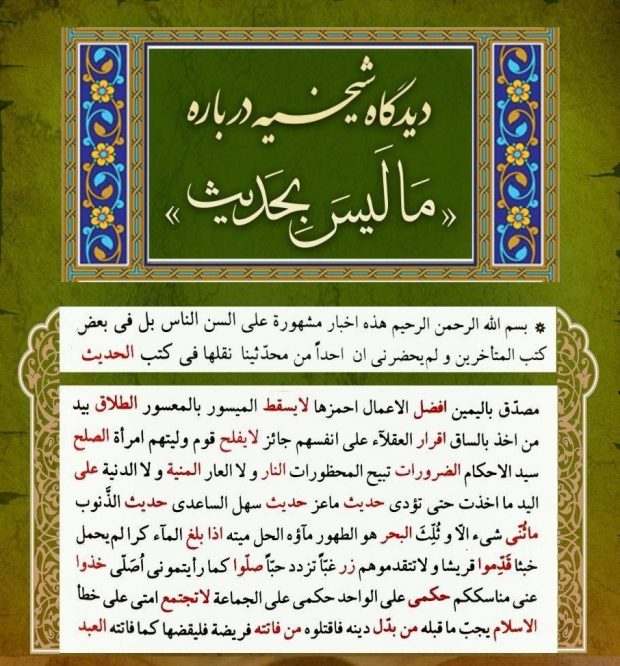 دیدگاه شیخیه درباره
«مَا لَیسَ بِحَدیث»
بسم الله الرحمن الرحیم هذه اخبار مشهورة علی السن الناس بل فی بعض
کتب المتأخرین و لم‌یحضرنی ان احداً من محدّثینا نقلها فی کتب الحدیث
مصدّق بالیمین افضل الاعمال احمزها لایسقط المیسور بالمعسور الطلاق بید
من اخذ بالساق اقرار العقلآء علی انفسهم جائز لایفلح قوم ولیتهم امرأة الصلح
سید الاحکام الضرورات تبیح المحظورات النار و لا العار المنیة و لا الدنیة علی
الید ما اخذت حتی تؤدی حدیث ماعز حدیث سهل الساعدی حدیث الذَّنوب
ماثُنّی شیء الاّ و ثُلِّثَ البحر هو الطهور مآؤه الحل میته اذا بلغ المآء کرا لم‌یحمل
خبثا قَدِّموا قریشا و لاتتقدموهم زر غبّاً تزدد حبّاً صلّوا کما رأیتمونی اُصَلّی خذوا
عنی مناسککم حکمی علی الواحد حکمی علی الجماعة لاتجتمع امتی علی خطأ
الاسلام یجبّ ما قبله من بدّل دینه فاقتلوه من فاتته فریضة فلیقضها کما فاتته العبد